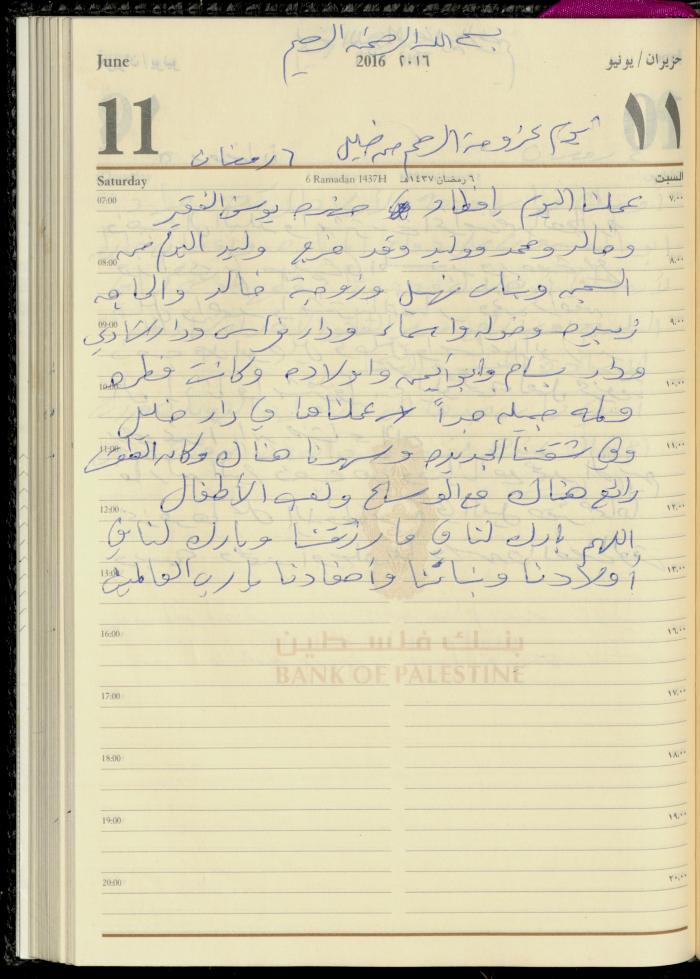 بسم الله الرحمن الرحيم
June
2016 ٢٠١٦
حزيران / يونيو
11
١١
يوم عزومة الرحم من خليل ٦ رمضان
Saturday
6 Ramadan 1437H
٦ رمضان ١٤٣٧هـ
السبت
07:00 ٧,٠٠
عملنا اليوم إفطار حضره يوسف الفقير
وخالد ومحمد ووليد وقد خرج وليد اليوم من
08:00 ٨,٠٠
السجن وبنات نهيل وزوجة خالد والحاجه
09:00 ٩,٠٠
زبيده وخوله واسماء ودار فراس ودار الشادي
ودار بسام وابو ايمن واولاده وكانت فطره
10:00 ١٠,٠٠
ولمه جميله جداً عملناها في دار خليل
11:00 ١١,٠٠
وفي شقتنا الجديده وسهرنا هناك وكان الطقس
رائع هناك مع الوساع ولعب الأطفال
12:00 ١٢,٠٠
اللهم بارك لنا في ما رزقتنا وبارك لنا في
13:00 ١٣,٠٠
أولادنا وبناتنا وأحفادنا يا رب العالمين
16:00 ١٦,٠٠
بنك فلسطين
BANK OF PALESTINE
17:00 ١٧,٠٠
18:00 ١٨,٠٠
19:00 ١٩,٠٠
20:00 ٢٠,٠٠